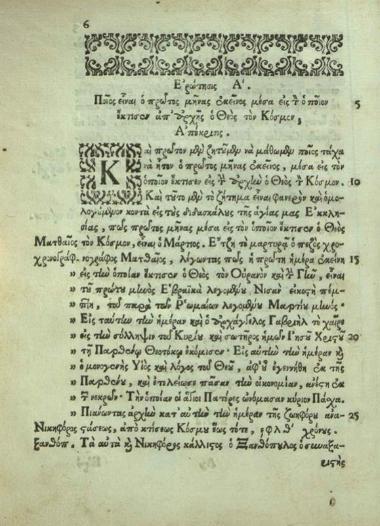 6
Ἐρώτησις Α΄.
Ποῖος εἶναι ὁ πρῶτος μῆνας ἐκεῖνος μέσα εἰς τὸν ὁποῖον
5
ἔκτισεν ἀπ᾽ ἀρχῆς ὁ Θεὸς τὸν Κόσμον;
Ἀπόκρισις.
Καὶ πρῶτον μὲν ζητοῦμεν νὰ μάθωμεν ποῖος τάχα
νὰ ἦτον ὁ πρῶτος μῆνας ἐκεῖνος, μέσα εἰς τὸν
ὁποῖον ἔκτισεν εἰς τὴν ἀρχὴν ὁ Θεὸς τὸν Κόσμον.
10
Καὶ τοῦτο μὲν τὸ ζήτημα εἶναι φανερὸν καὶ ὁμο-
λογούμενον κοντὰ εἰς τοὺς διδασκάλους τῆς ἁγίας μας Ἐκκλη-
σίας, πῶς πρῶτος μῆνας μέσα εἰς τὸν ὁποῖον ἔκτισεν ὁ Θεὸς
Ματθαῖος τὸν Κόσμον, εἶναι ὁ Μάρτιος. Ἔτζη τὸ μαρτυρᾷ ὁ πεζὸς χρο-
χρονογράφ. νογράφος Ματθαῖος, λέγωντας πῶς ἡ πρώτη ἡμέρα ἐκείνη
15
„ εἰς τὴν ὁποίαν ἔκτισεν ὁ Θεὸς τὸν Οὐρανὸν καὶ τὴν Γῆν, εἶναι
„ τοῦ πρώτου μηνὸς Ἑβραϊκὰ λεγομένου Νισὰν εἰκοστὴ πέμ-
„ πτη, τοῦ παρὰ τῶν Ῥωμαίων λεγομένου Μαρτίου μηνός.
„ Εἰς ταύτην τὴν ἡμέραν καὶ ὁ ἀρχάγγελος Γαβριὴλ τὸ χαῖρε
„ εἰς τὴν σύλληψιν τοῦ Κυρίου καὶ σωτῆρος ἡμῶν Ἰησοῦ Χριστοῦ
20
„ τῇ Παρθένῳ Θεοτόκῳ ἐκόμισεν. Εἰς αὐτὴν τὴν ἡμέραν καὶ
„ ὁ μονογενὴς Υἱὸς καὶ λόγος τοῦ Θεοῦ, ἀφ᾽ οὗ ἐγεννήθη ἐκ τῆς
„ Παρθένου, καὶ ἐτελείωσε πᾶσαν τὴν οἰκονομίαν, ἀνέστη ἐκ
„ τῶν νεκρῶν. Τὴν ὁποίαν οἱ ἅγιοι Πατέρες ὠνόμασαν κύριον Πάσχα.
„ Πιάνωντας ἀρχὴν κατ᾽ αὐτὴν τὴν ἡμέραν τῆς ζωηφόρου ἀνα-
25
Νικηφόρος στάσεως, ἀπὸ κτίσεως Κόσμου ἕως τότε, ͵εφλθ΄ χρόνους.
ξανθόπ. Τὰ αὐτὰ καὶ Νικηφόρος κάλλιστος ὁ Ξανθόπουλος ὁ συναξα-
ριστὴς